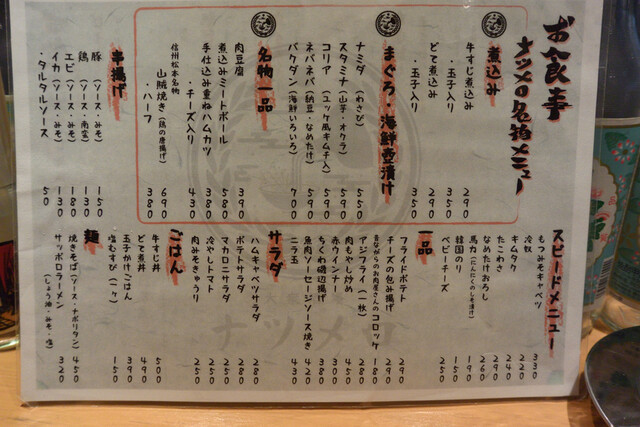 お食事
ナツメの名物メニュー
煮込み
牛すじ煮込み 290
・玉子入り 350
どて煮込み 290
・玉子入り 350
まぐろ・海鮮壺漬け
ナミダ(わさび) 550
スタミナ(山芋・オクラ) 590
コリア(ユッケ風キムチ入) 590
ネバネバ(納豆・なめたけ) 590
バクダン(海鮮いろいろ) 700
名物一品
肉豆腐 390
煮込みミートボール 580
手仕込み重ねハムカツ 380
・チーズ入り 430
信州松本名物
山賊焼き(鶏の唐揚げ) 690
・ハーフ 380
串揚げ
豚(ソース・みそ) 150
鶏(ソース・南蛮) 130
エビ(ソース・みそ) 180
イカ(ソース・みそ) 130
・タルタルソース 50
スピードメニュー
もつみそキャベツ 330
冷奴 220
キムタク 240
たこわさ 290
なめたけおろし 260
馬力(にんにくのしそ漬け) 190
韓国のり 150
ベビーチーズ 250
一品
フライドポテト 290
チーズの包み揚げ 290
昔ながらのお肉屋さんのコロッケ 180
アジフライ(一枚) 280
肉もやし炒め 450
赤ウインナー 380
ちくわ磯辺揚げ 380
魚肉ソーセージソース焼き 420
ニラ玉 430
サラダ
ハムキャベツサラダ 280
ポテトサラダ 280
マカロニサラダ 250
冷やしトマト 250
肉みそきゅうり 250
ごはん
牛すじ丼 500
どて煮丼 490
玉子かけごはん 390
塩むすび(一ヶ) 150
麺
焼きそば(ソース・ナポリタン) 450
サッポロラーメン 320
(しょう油・みそ・塩)
ナツメ